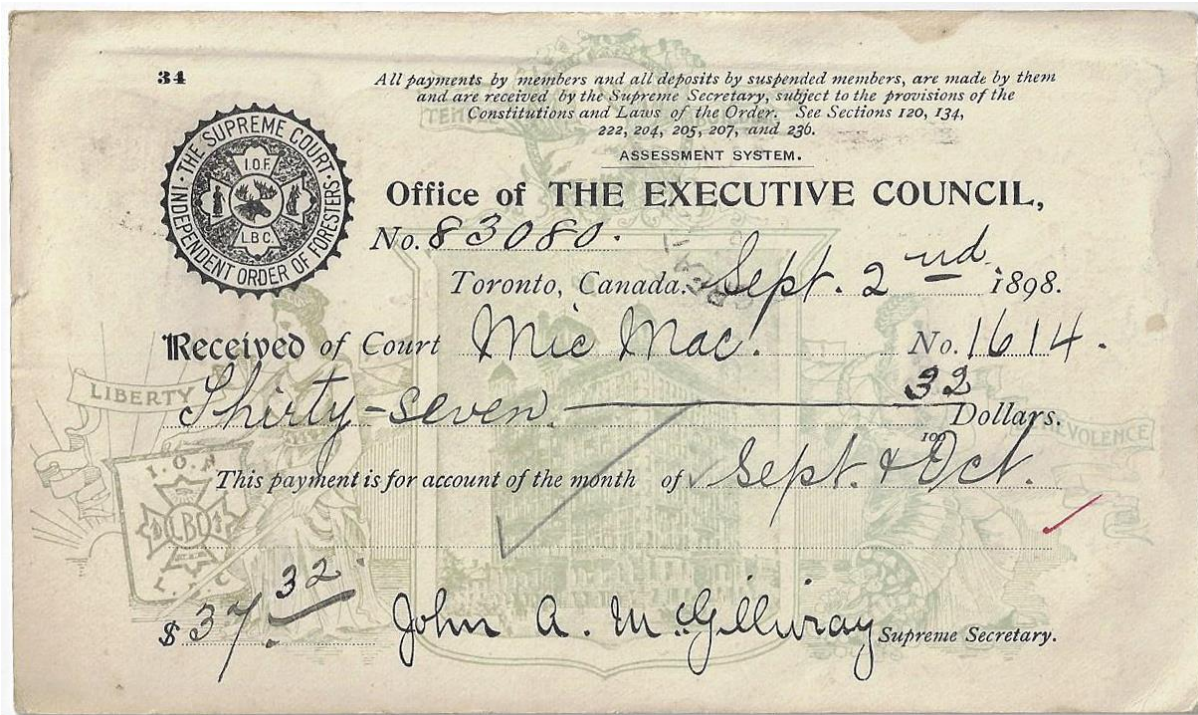 34
All payments by members and all deposits by suspended members, are made by them
and are received by the Supreme Secretary, subject to the provisions of the
Constitutions and Laws of the Order. See Sections 120, 134,
222, 204, 205, 207, and 236.
ASSESSMENT SYSTEM.
· THE SUPREME COURT · INDEPENDENT ORDER OF FORESTERS
I.O.F.
L.B.C.
Office of THE EXECUTIVE COUNCIL,
No. 83080.
Toronto, Canada. Sept. 2nd 1898.
Received of Court Mic Mac. No. 1614.
LIBERTY
Thirty-seven 32/100 Dollars.
BENEVOLENCE
I.O.F
LBC
This payment is for account of the month of Sept. & Oct.
$ 37.32 John A. McGillivray Supreme Secretary.